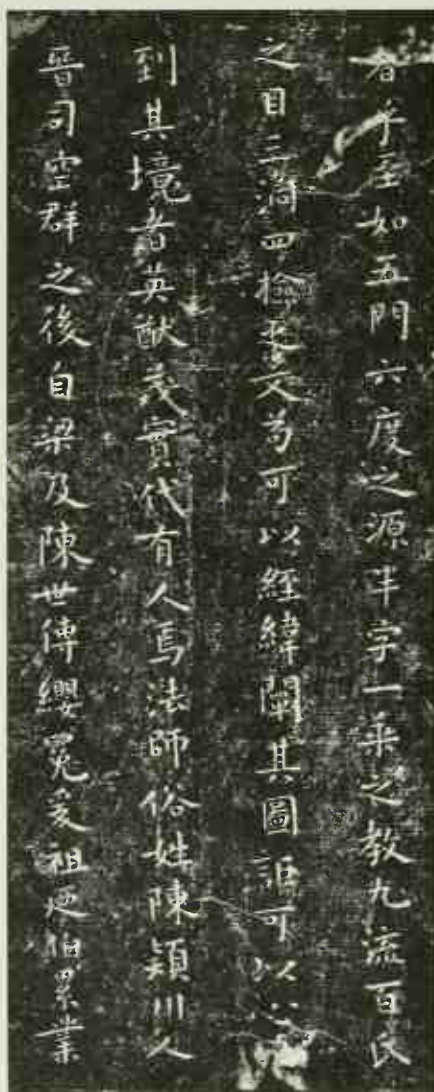 者乎至如五門六度之源半字一乘之教九流百氏
之目三洞四檢之文可以經緯闡其圖詎可以心
到其境者英猷茂實代有人焉法師俗姓陳穎川人
晉司空群之後自梁及陳世傳纓冕爰祖延伯累業